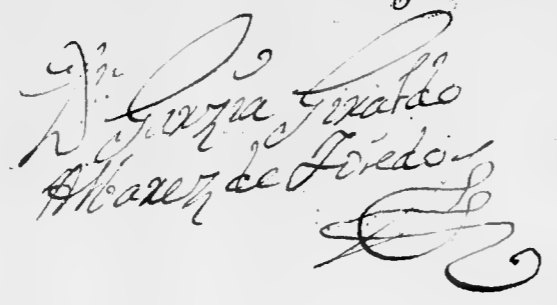 Dn Garzia Giraldo
Albarez de Toledo